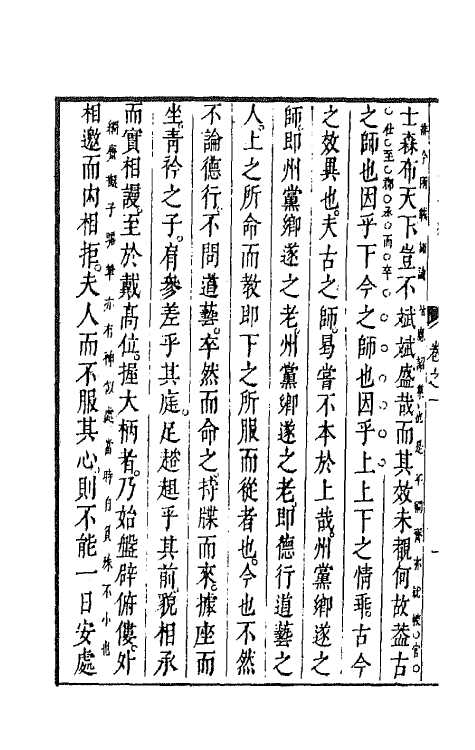 卷之一
士森布天下豈不斌斌盛哉而其效未覩何故葢古
之師也因乎下今之師也因乎上上下之情乖古今
之效異也夫古之師曷嘗不本於上哉州黨鄉遂之
師即州黨鄉遂之老州黨鄉遂之老即德行道藝之
人上之所命而教即下之所服而從者也今也不然
不論德行不問道藝卒然而命之持牒而來據座而
坐青衿之子有參差乎其庭足趦趄乎其前貌相承
而實相謾至於戴高位握大柄者乃始盤辟俯僂外
筆亦有神似處當時自負殊不小也
相邀而内相拒夫人而不服其心則不能一日安處